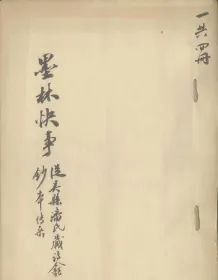 一共四冊
墨林快事
從吳縣潘氏藏
鈔本傳錄